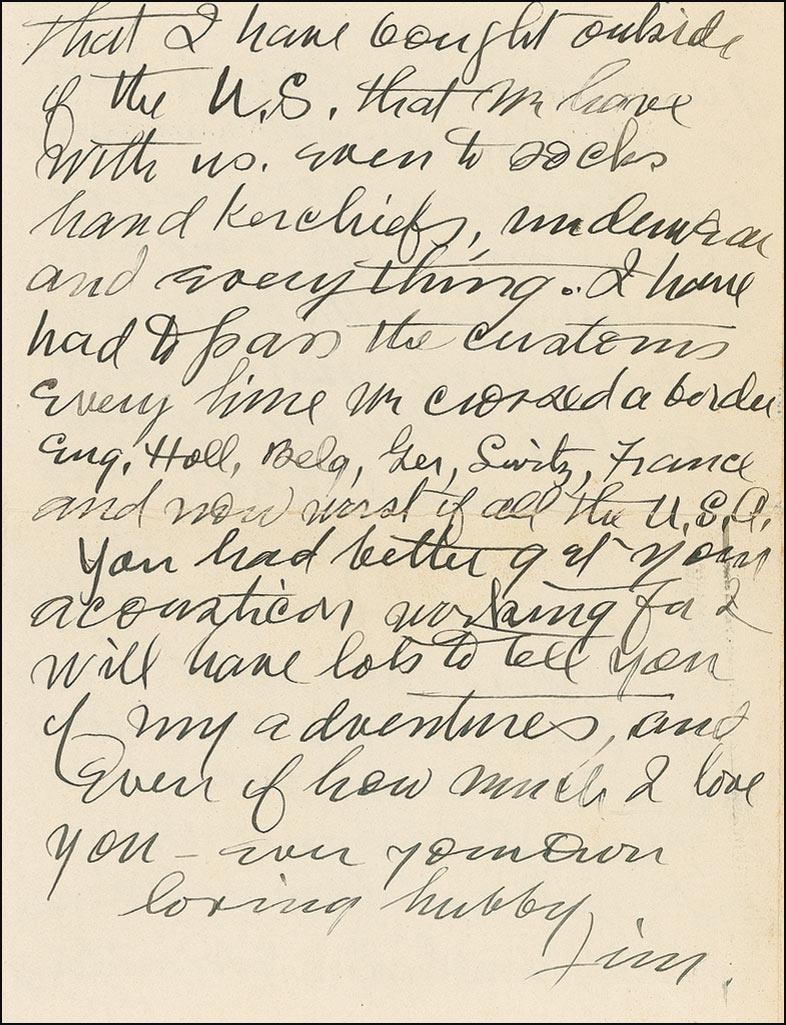 that I have bought outside
of the U.S. that we have
with us. even to socks
hand kerchiefs, underwear
and everything. I have
had to pass the customs
Every time we crossed a border
Eng, Holl, Belg, Ger, Switz, France
and now worst of all the U.S.A.
You had better get your
acousticon working for I
will have lots to tell you
of my adventures, and
Even of how much I love
you - ever your own
loving hubby
Jim.